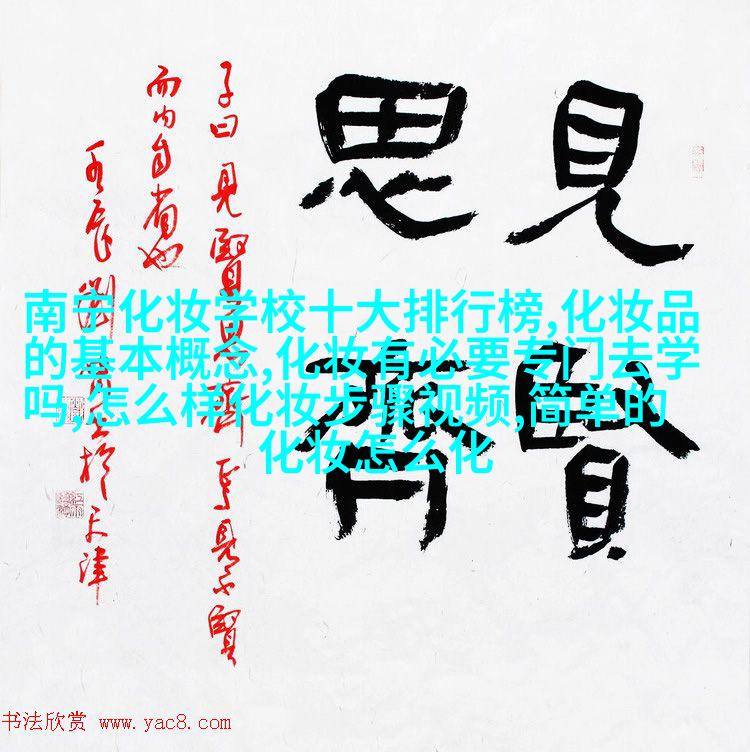 見賢
思齊
子曰見賢思齊焉見不賢
而内自省也
辰劉於天津
南宁化妆学校十大排行榜,化妆品
的基本概念,化妆有必要专门去学
吗,怎么样化妆步骤视频,简单的
化妆怎么化
书法欣赏 www.yac8.com